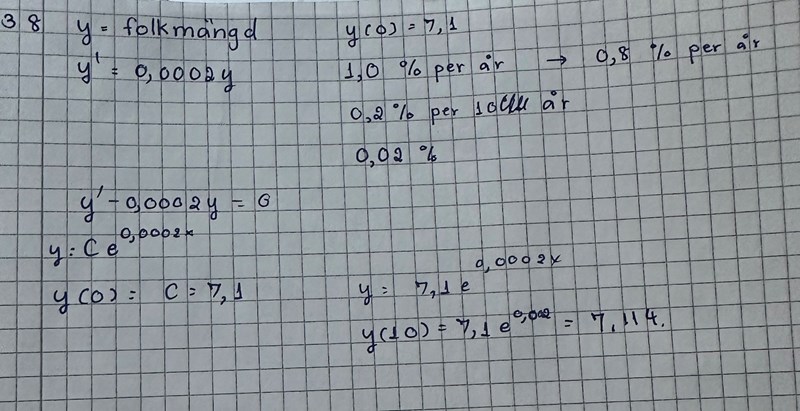 38 y = folkmängd y(0) = 7,1
y' = 0,0002y 1,0 % per år → 0,8 % per år
0,2% per 10 år
0,02 %
y' - 0,0002y = 0
y = C e^0,0002x
y(0) = C = 7,1 y = 7,1 e^0,0002x
y(10) = 7,1 e^0,002 = 7,114.